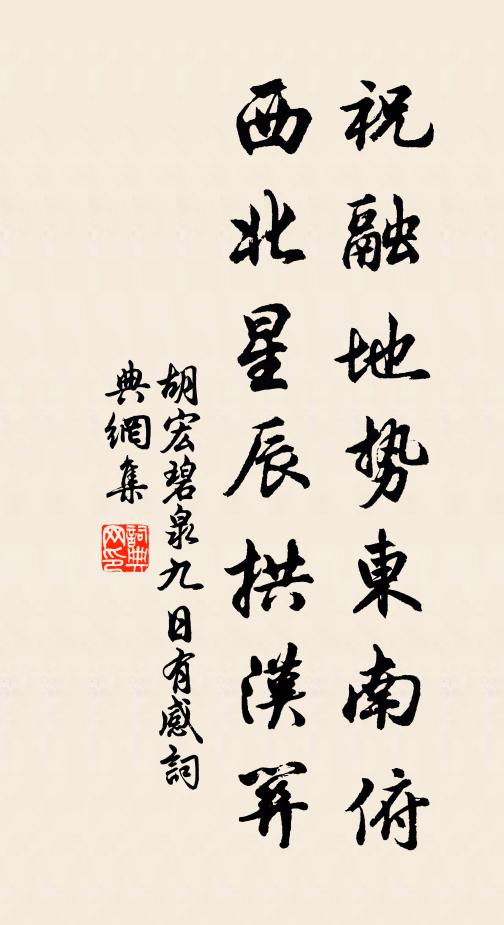 祝融地势東南俯
西北星辰拱漢
胡宏碧泉九日有感詞
典網集
詞典
网印